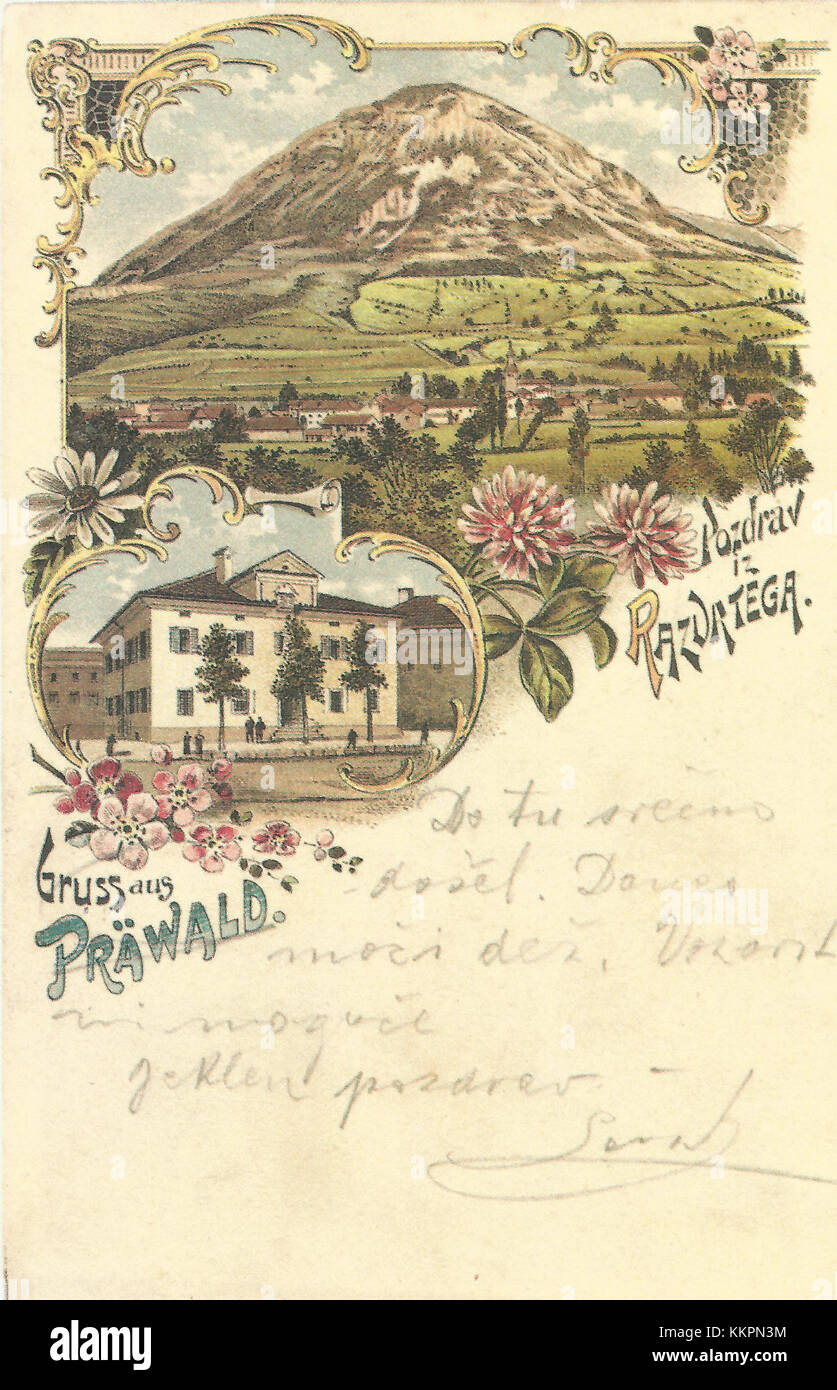 Pozdrav
iz
RAZDRTEGA.
Gruss aus
PRÄWALD.
Do tu srečno
došel. Danes
moči dež.
ni mogoče
Jeklen pozdrav –
alamy
Image ID: KKPN3M
www.alamy.com